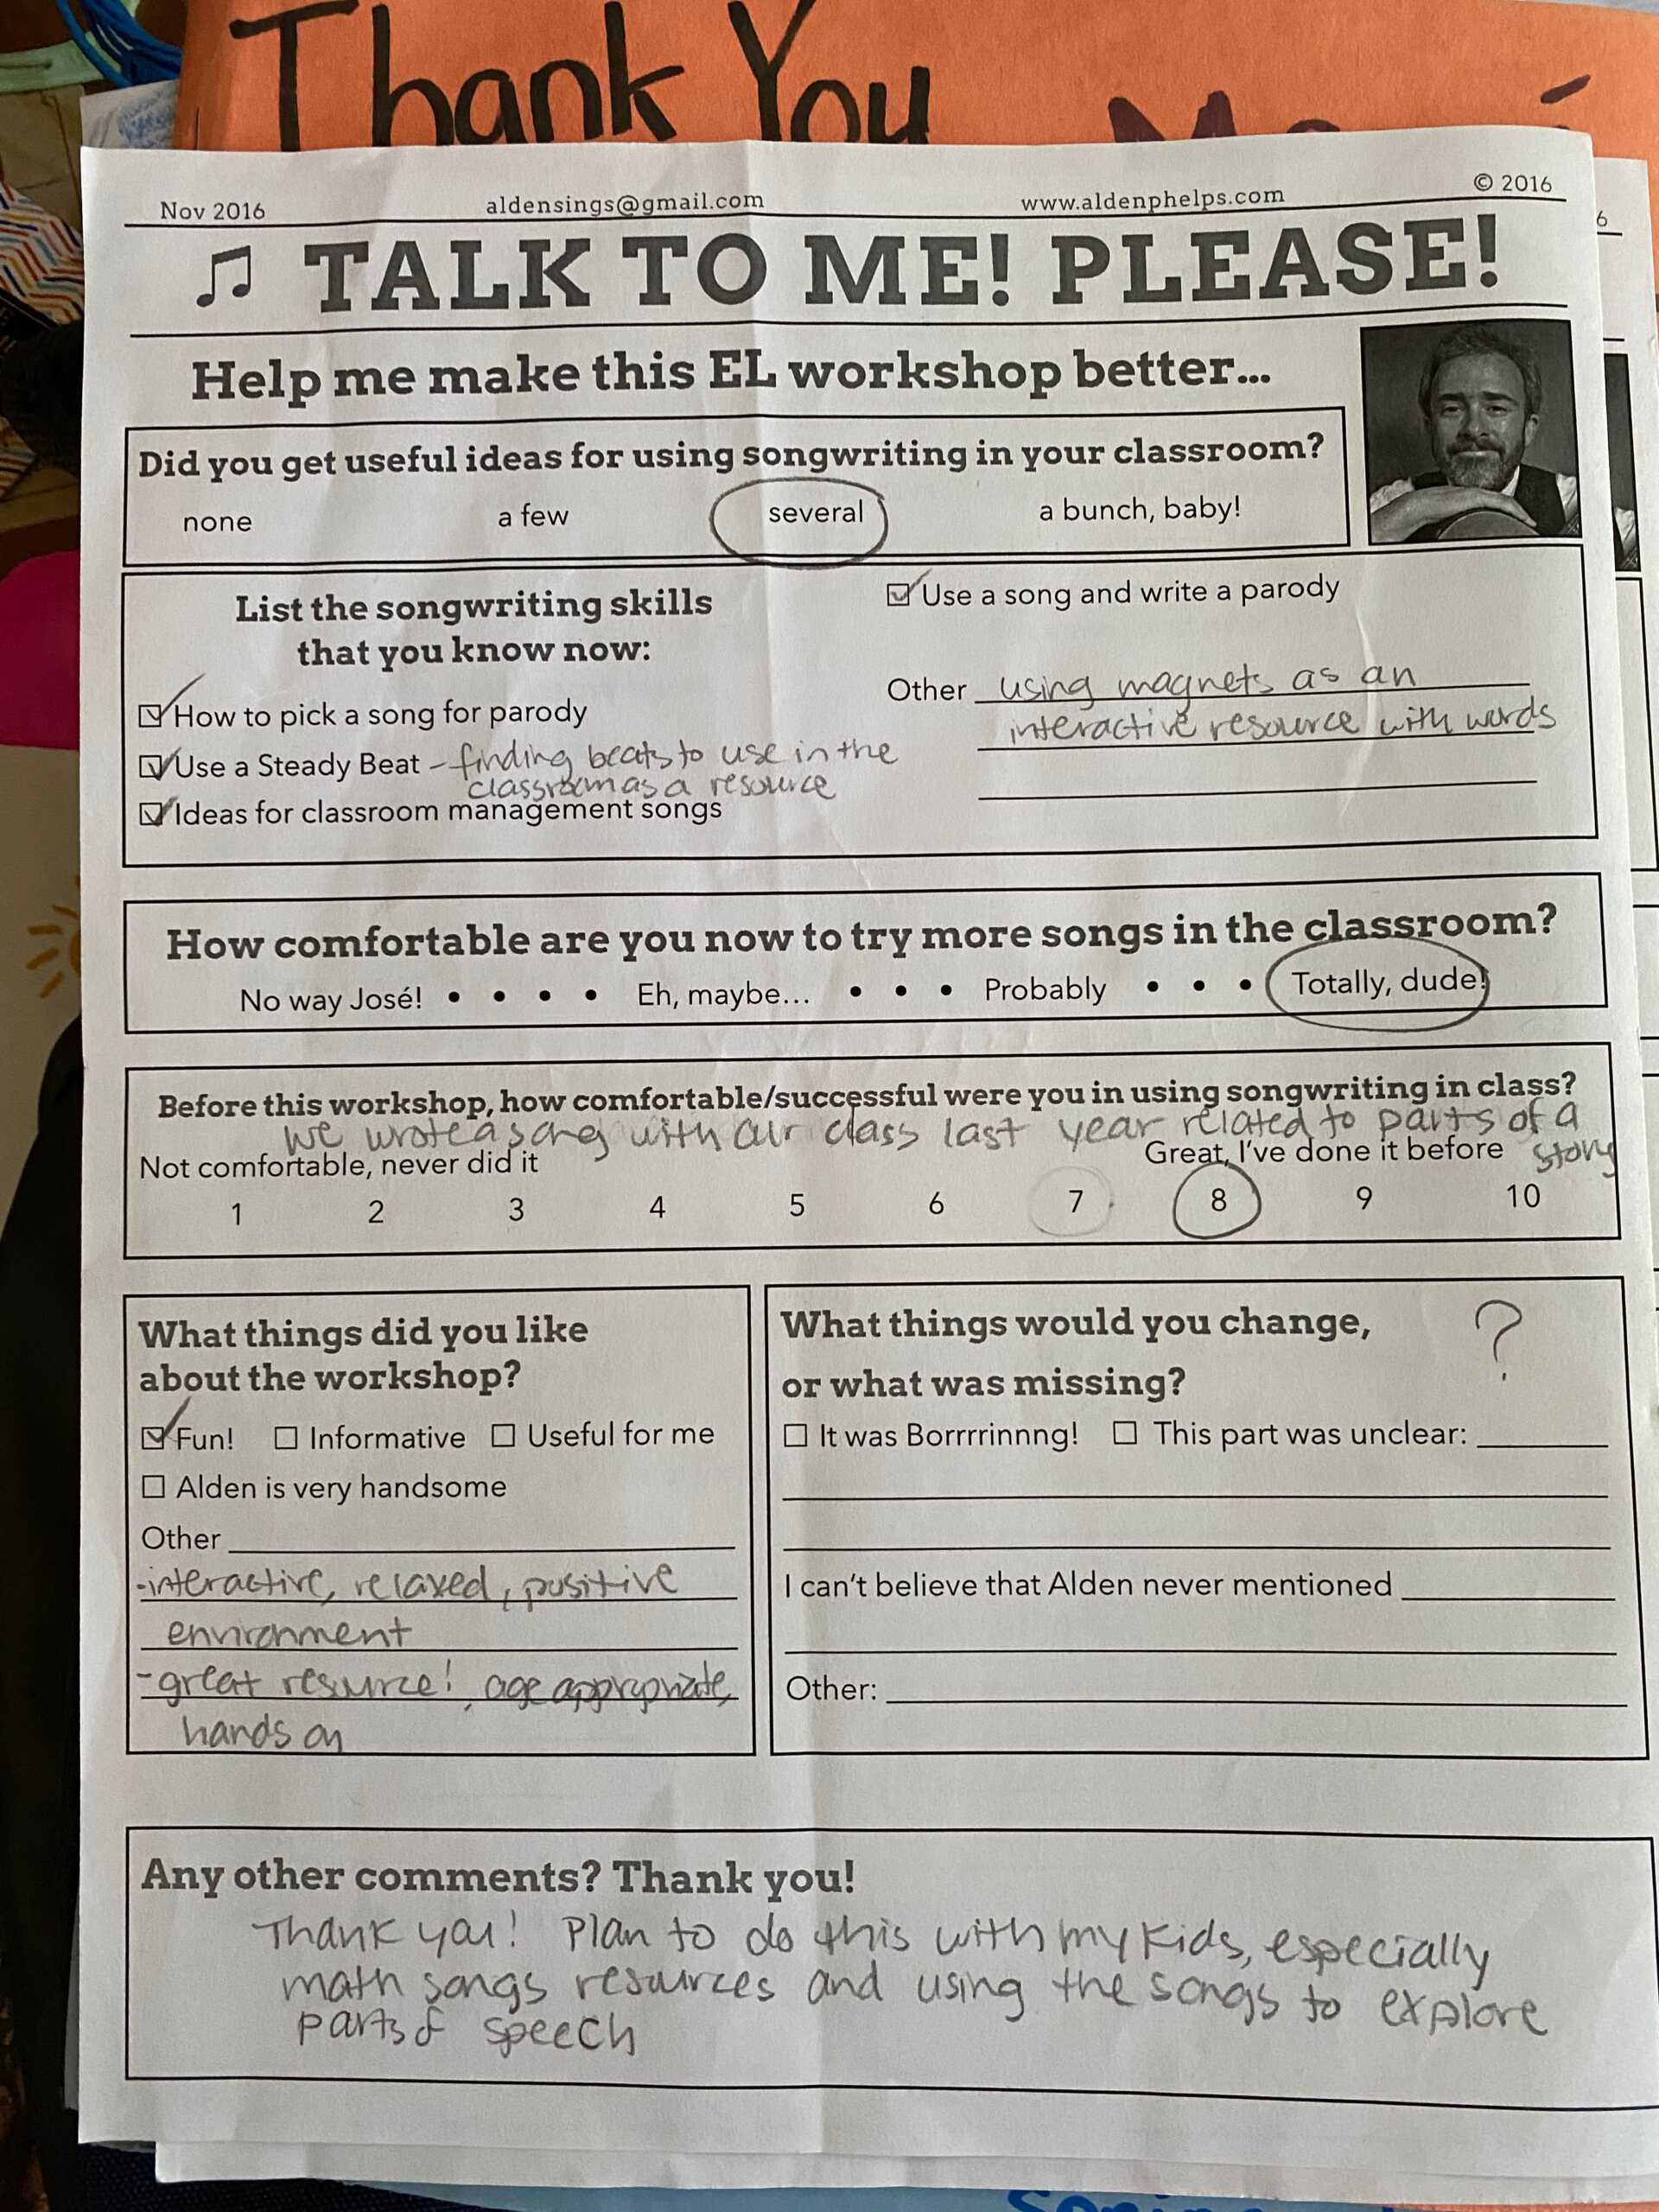 Thank You
Nov 2016 aldensings@gmail.com www.aldenphelps.com © 2016
♫ TALK TO ME! PLEASE!
Help me make this EL workshop better...
Did you get useful ideas for using songwriting in your classroom?
none a few several a bunch, baby!
List the songwriting skills
that you know now:
☑ How to pick a song for parody
☑ Use a Steady Beat – finding beats to use in the
classroom as a resource
☑ Ideas for classroom management songs
☑ Use a song and write a parody
Other using magnets as an
interactive resource with words
How comfortable are you now to try more songs in the classroom?
No way José! • • • • Eh, maybe... • • • Probably • • • Totally, dude!
Before this workshop, how comfortable/successful were you in using songwriting in class?
We wrote a song with our class last year related to parts of a
story
Not comfortable, never did it Great, I've done it before
1 2 3 4 5 6 7 8 9 10
What things did you like
about the workshop?
☑ Fun! ☐ Informative ☐ Useful for me
☐ Alden is very handsome
Other
-interactive, relaxed, positive
environment
-great resource!, age appropriate,
hands on
What things would you change, ?
or what was missing?
☐ It was Borrrrinnng! ☐ This part was unclear:
I can't believe that Alden never mentioned
Other:
Any other comments? Thank you!
Thank you! Plan to do this with my kids, especially
math songs resources and using the songs to explore
parts of speech